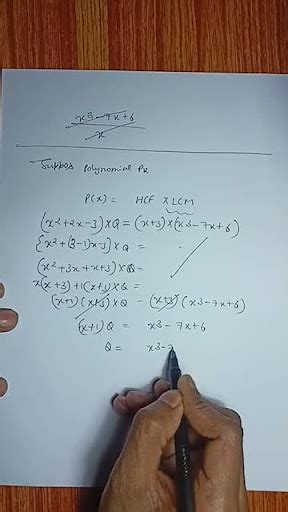 x3-7x+6
x
Suppos Polynomial Px
P(x) = HCF X LCM
(x²+2x-3)×Q = (x+3)×(x3-7x+6)
{x²+(3-1)x-3}×Q =
(x²+3x+x+3)×Q=
x(x+3)+1(x+3)×Q
(x+1)(x+3)×Q - (x+3)(x3-7x+6)
(x+1)Q = x3-7x+6
Q = x3-7